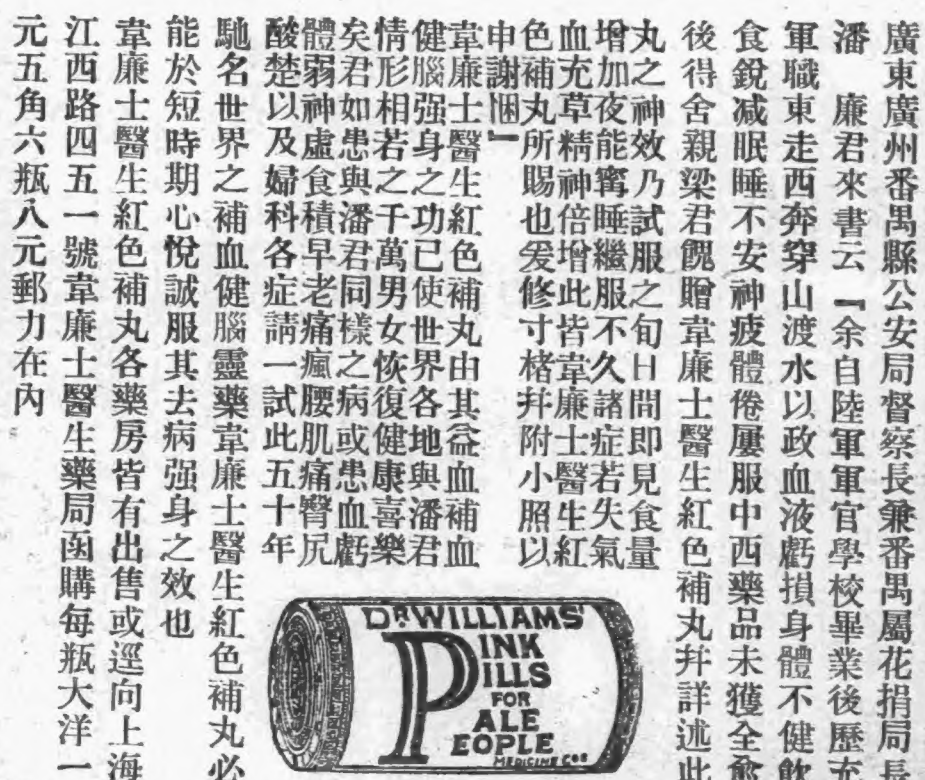 廣東廣州番禺縣公安局督察長兼番禺屬花捐局長
潘　廉君來書云『余自陸軍軍官學校畢業後歷充
軍職東走西奔穿山渡水以政血液虧損身體不健飲
食銳減眠睡不安神疲體倦屢服中西藥品未獲全愈
後得舍親梁君餽贈韋廉士醫生紅色補丸幷詳述此
丸之神效乃試服之旬日間即見食量
增加夜能寗睡繼服不久諸症若失氣
血充草精神倍增此皆韋廉士醫生紅
色補丸所賜也爰修寸楮幷附小照以
申謝悃』
韋廉士醫生紅色補丸由其益血補血
健腦强身之功已使世界各地與潘君
情形相若之千萬男女恢復健康喜樂
矣君如患與潘君同樣之病或患血虧
體弱神虛食積早老痛瘋腰肌痛臀尻
酸楚以及婦科各症請一試此五十年
馳名世界之補血健腦靈藥韋廉士醫生紅色補丸必
能於短時期心悅誠服其去病强身之效也
韋廉士醫生紅色補丸各藥房皆有出售或逕向上海
江西路四五一號韋廉士醫生藥局函購每瓶大洋一
元五角六瓶八元郵力在內
DR WILLIAMS'
PINK
PILLS
FOR
PALE
PEOPLE
MEDICINE Co's